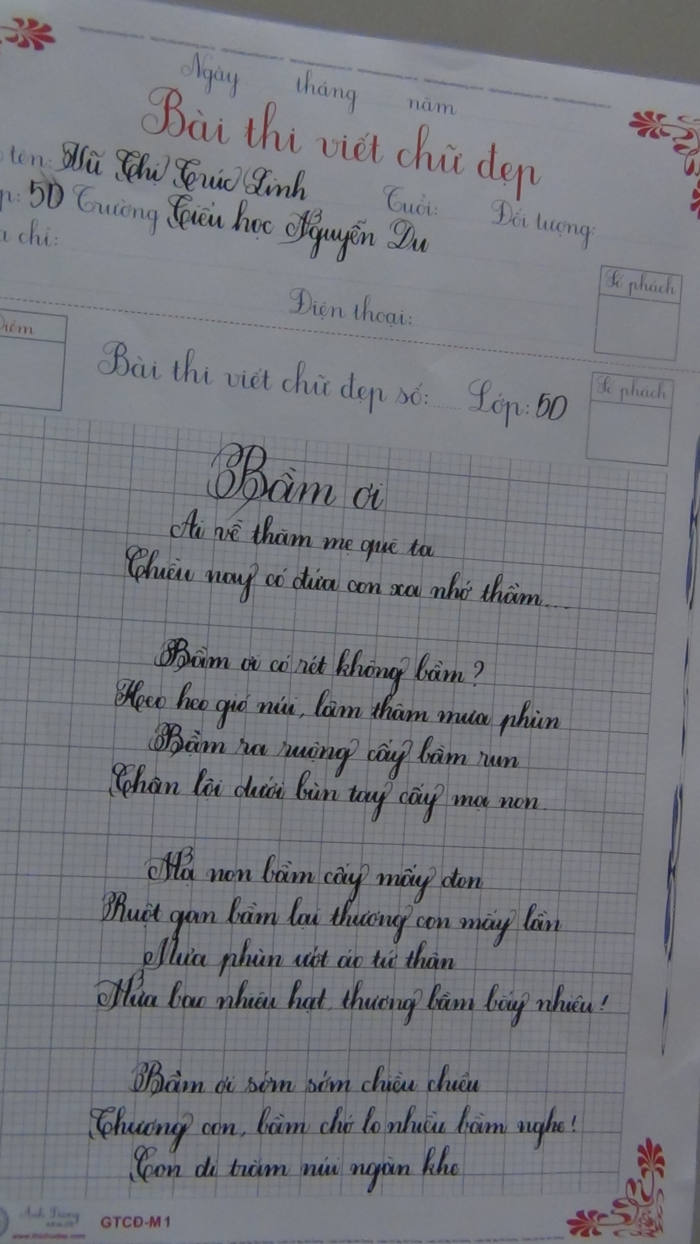 Ngày tháng năm
Bài thi viết chữ đẹp
tên: Vũ Thị Trúc Linh Tuổi: Đối tượng:
p: 5D Trường Tiểu học Nguyễn Du
a chỉ:
Số phách
Điện thoại:
Điểm
Bài thi viết chữ đẹp số: Lớp: 5D
Số phách
Bầm ơi
Ai về thăm mẹ quê ta
Chiều nay có đứa con xa nhớ thầm...
Bầm ơi có rét không bầm?
Heo heo gió núi, lâm thâm mưa phùn
Bầm ra ruộng cấy bầm run
Chân lội dưới bùn tay cấy mạ non
Mạ non bầm cấy mấy đon
Ruột gan bầm lại thương con mấy lần
Mưa phùn ướt áo tứ thân
Mưa bao nhiêu hạt, thương bầm bấy nhiêu!
Bầm ơi sớm sớm chiều chiều
Thương con, bầm chớ lo nhiều bầm nghe!
Con đi trăm núi ngàn khe
GTCD-M1